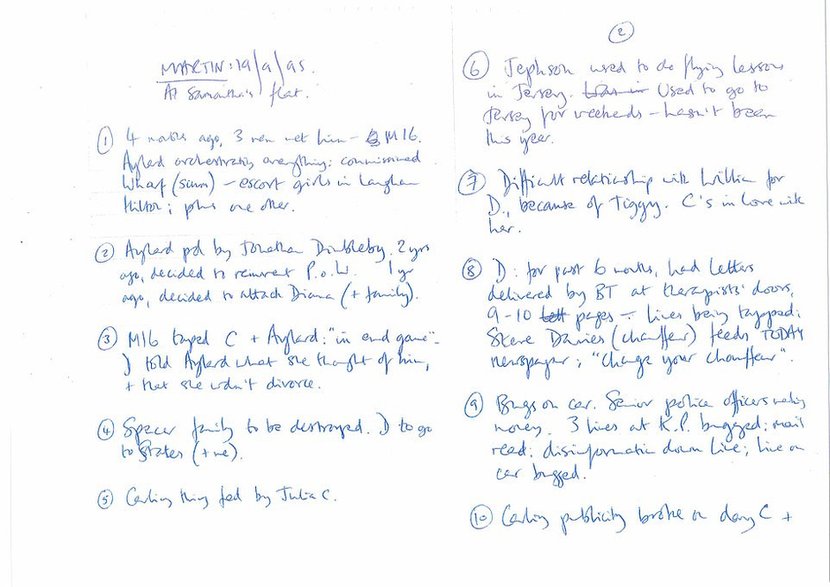 MARTIN: 19/9/95.
At Samantha's flat.
① 4 months ago, 3 men met him – MI6.
Aylard orchestrating everything: commissioned
Wharf (Sun) – escort girls in Langham
Hilton; plus one other.
② Aylard pd by Jonathan Dimbleby. 2 yrs
ago, decided to reinvent P.o.W. 1 yr
ago, decided to attack Diana (+ family).
③ MI6 taped C + Aylard: "in end game" –
D told Aylard what she thought of him,
+ that she wdn't divorce.
④ Spencer family to be destroyed. D to go
to States (+ me).
⑤ Carling thing fed by Julia C.
②
⑥ Jephson used to do flying lessons
in Jersey. Used to go to
Jersey for weekends – hasn't been
this year.
⑦ Difficult relationship with William for
D., because of Tiggy. C's in love with
her.
⑧ D: for past 6 months, had letters
delivered by BT at therapists' doors,
9–10 pages – lines being tapped:
Steve Davies (chauffeur) feeds TODAY
newspaper; "Change your chauffeur".
⑨ Bugs on car. Senior police officers making
money. 3 lines at K.P. bugged: mail
read: disinformation down line; line on
car bugged.
⑩ Carling publicity broke on day C +